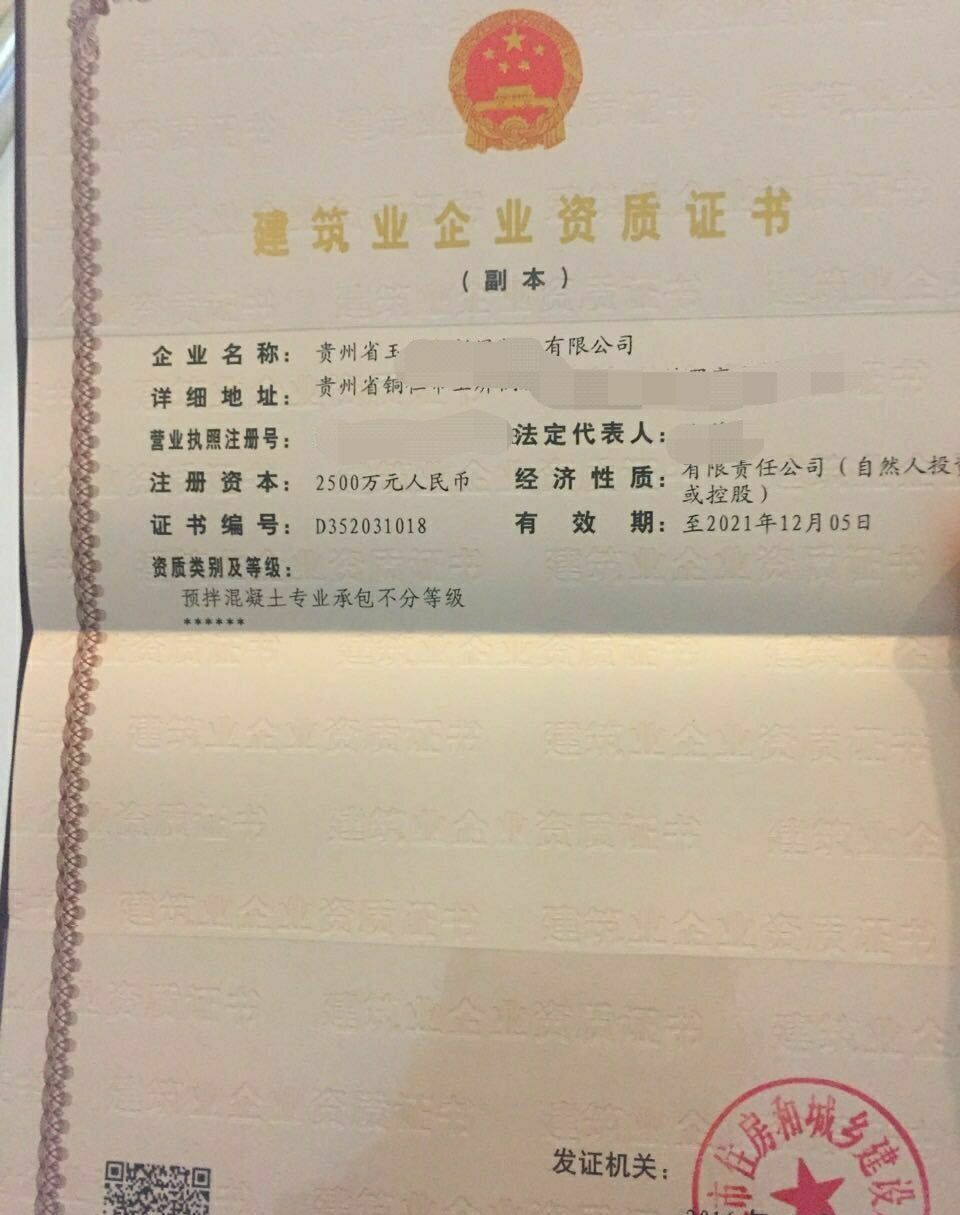 建筑业企业资质证书
（副本）
企业名称：贵州省玉 有限公司
详细地址：贵州省铜仁市
营业执照注册号：
法定代表人：
注册资本：2500万元人民币
经济性质：有限责任公司（自然人投资
或控股）
证书编号：D352031018
有效期：至2021年12月05日
资质类别及等级：
预拌混凝土专业承包不分等级
******
发证机关：
市住房和城乡建设